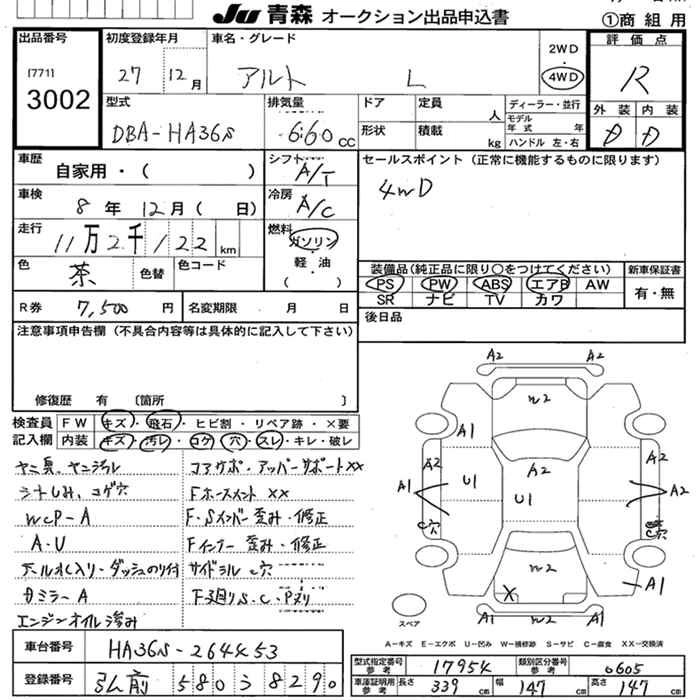 JU 青森 オークション出品申込書
①商 組 用
出品番号
[771]
3002
初度登録年月
27 12 月
車名・グレード
アルト L
2WD
・
4WD
評 価 点
R
外 装 内 装
D D
型式
DBA-HA36S
排気量
660 CC
ドア
定員
人
ディーラー・並行
モデル
年 式 年
ハンドル 左・右
形状
積載
kg
車歴
自家用・( )
シフト
A/T
セールスポイント(正常に機能するものに限ります)
4WD
車検
8 年 12 月( 日)
冷房
A/C
走行
11万2千122 km
燃料
ガソリン
軽・油
( )
色
茶
色替
色コード
装備品(純正品に限り○をつけてください)
新車保証書
PS PW ABS エアB AW
SR ナビ TV カワ
有・無
R券 7,500 円
名変期限 月 日
後日品
注意事項申告欄(不具合内容等は具体的に記入して下さい)
修復歴 有 〔箇所 〕
検査員
記入欄
FW キズ・飛石・ヒビ割・リペア跡・×要
内装 キズ・汚レ・コゲ・穴・スレ・キレ・破レ
コアサポ・アッパーサポートXX
シートしみ、コゲ穴
Fホースメント XX
WCP-A
F・Sメンバー歪み・修正
A・U
Fインナー歪み・修正
サイドシル C穴
ミラーA
F廻りS・C・Pヌリ
エンジンオイル滲み
A2 A2
W2
A1
A2
A2
A2
A1
U1
U1
A2
C穴
C穴
W2
X
A1
W2
スペア
A-キズ E-エクボ U-凹み W-補修跡 S-サビ C-腐食 XX-交換済
車台番号
HA36S-264453
登録番号
弘前 580 う 8290
型式指定番号
参考
17954
類別区分番号
参考
0605
車庫証明用
参考
長さ 339 cm
幅 147 cm
高さ 147 cm